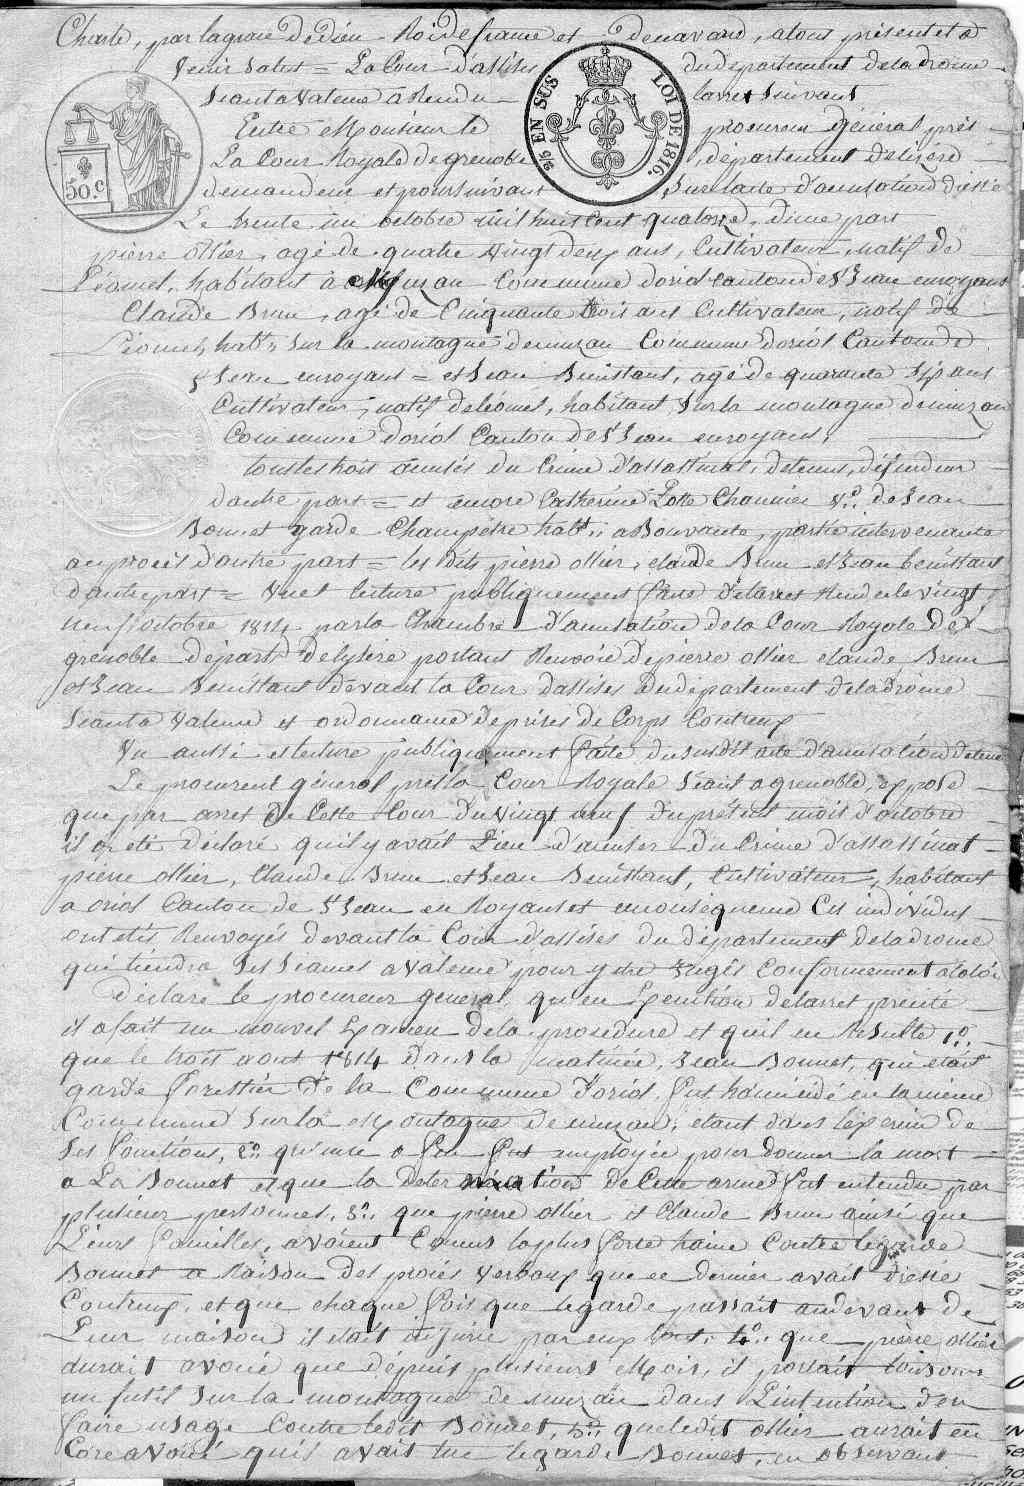 Charle, par lagracie dedieu Roi de france et denavard, atous présent et a
venir Salut = La Cour d'assises du departement dela drome
Seant a Valence a Rendu larret suivant
Entre Monsieur le procureur général près
La Cour Royale de grenoble, département deliséré
demandeur et poursuivant sur lacte d'accusation dressé
Le trente un octobre mil huit cent quatorze, d'une part
pierre ollier, agé de quatre vingt deux ans, Cultivateur, natif de
Léoncel, habitant à musan Commune doriol canton de St Jean enroyans
Claude Brun, agé de Cinquante trois ans Cultivateur, natif de
Léoncel, habt. sur la montagne demusan Commune doriol Canton de
St Jean enroyant = et Jean Benistant, agé de quarante six ans
Cultivateur, natif deleoncel, habitant sur la montagne demusan
Commune doriol Canton de St Jean enroyans,
tous les trois accusés du Crime d'assassinat, detenus, défendeur
dautre part = et encore Catherine Lotte Chaunier Ve. de Jean
Bonnet garde Champêtre habt. a Bouvante, partie intervenante
au procès d'autre part = les dits pierre ollier, claude Brun et Jean benistant
d'autre part = Vu et lecture publiquement faite delarret Rendu le vingt
neuf octobre 1814 par la Chambre d'accusation de la Cour Royale de
grenoble départ. delysère portant Renvoie de pierre ollier claude Brun
et Jean Benistant devant la Cour d'assises du departement deladrome
Seant a Valence et ordonnance de prises de Corps Contreux
Vu aussi et lecture publiquement faite dususdit acte d'accusation
Le procureur général près la Cour Royale Séant a grenoble, expose
que par arret de Cette Cour du vingt neuf du présent mois d'octobre
il a été déclaré quil y avait Lieu d'accuser du Crime d'assassinat
pierre ollier, Claude Brun et Jean Benistant, Cultivateur, habitant
a oriol Canton de St Jean en Royans et enconsequence Ces individus
ont étés Renvoyés devant la Cour d'assises du département deladrome
qui tiendra Ses Seances a Valence pour y etre Jugés Conformement alaloi
Déclare le procureur general, qu'en Execution delarret precité
il a fait un nouvel Examen dela procedure et quil en Résulte 1o.
que le trois aout 1814 dans la matinée, Jean Bonnet, qui etait
garde forestier de la Commune d'oriol, fut homicidé en la même
Commune Sur la Montagne de musan, etant dans lexercice de
Ses fonctions, 2o. qu'une a feu fut employée pour donner la mort
a La Bonnet et que la detonnation de Cette arme fut entendue par
plusieurs personnes, 3o. que pierre ollier et Claude Brun ainsi que
Leurs familles, avaient Concus la plus forte haine Contre le garde
Bonnet a Raison des procès verbaux que ce dernier avait dressé
Contreux, et que chaque fois que legarde passait audevant de
Leur maison il était injurié par eux tous, 4o. que pierre ollier
aurait avoué que depuis plusieurs Mois, il portait toujours
un fusil sur la montagne de musan dans L'intention d'en
faire usage Contre ledit Bonnet, 5o. queledit ollier aurait en
Core avoué qu'il avait tué le garde Bonnet, en observant
25 EN SUS LOI DE 1816.
50.c